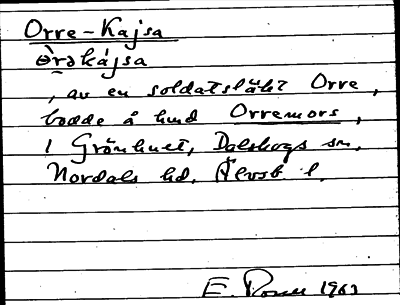 Orre-Kajsa
òrəkájsa
, av en soldatsläkt Orre,
bodde å lund Orremors,
i Grönhult, Dalskogs sn,
Nordals hd, Älvsb l.
E. 1963